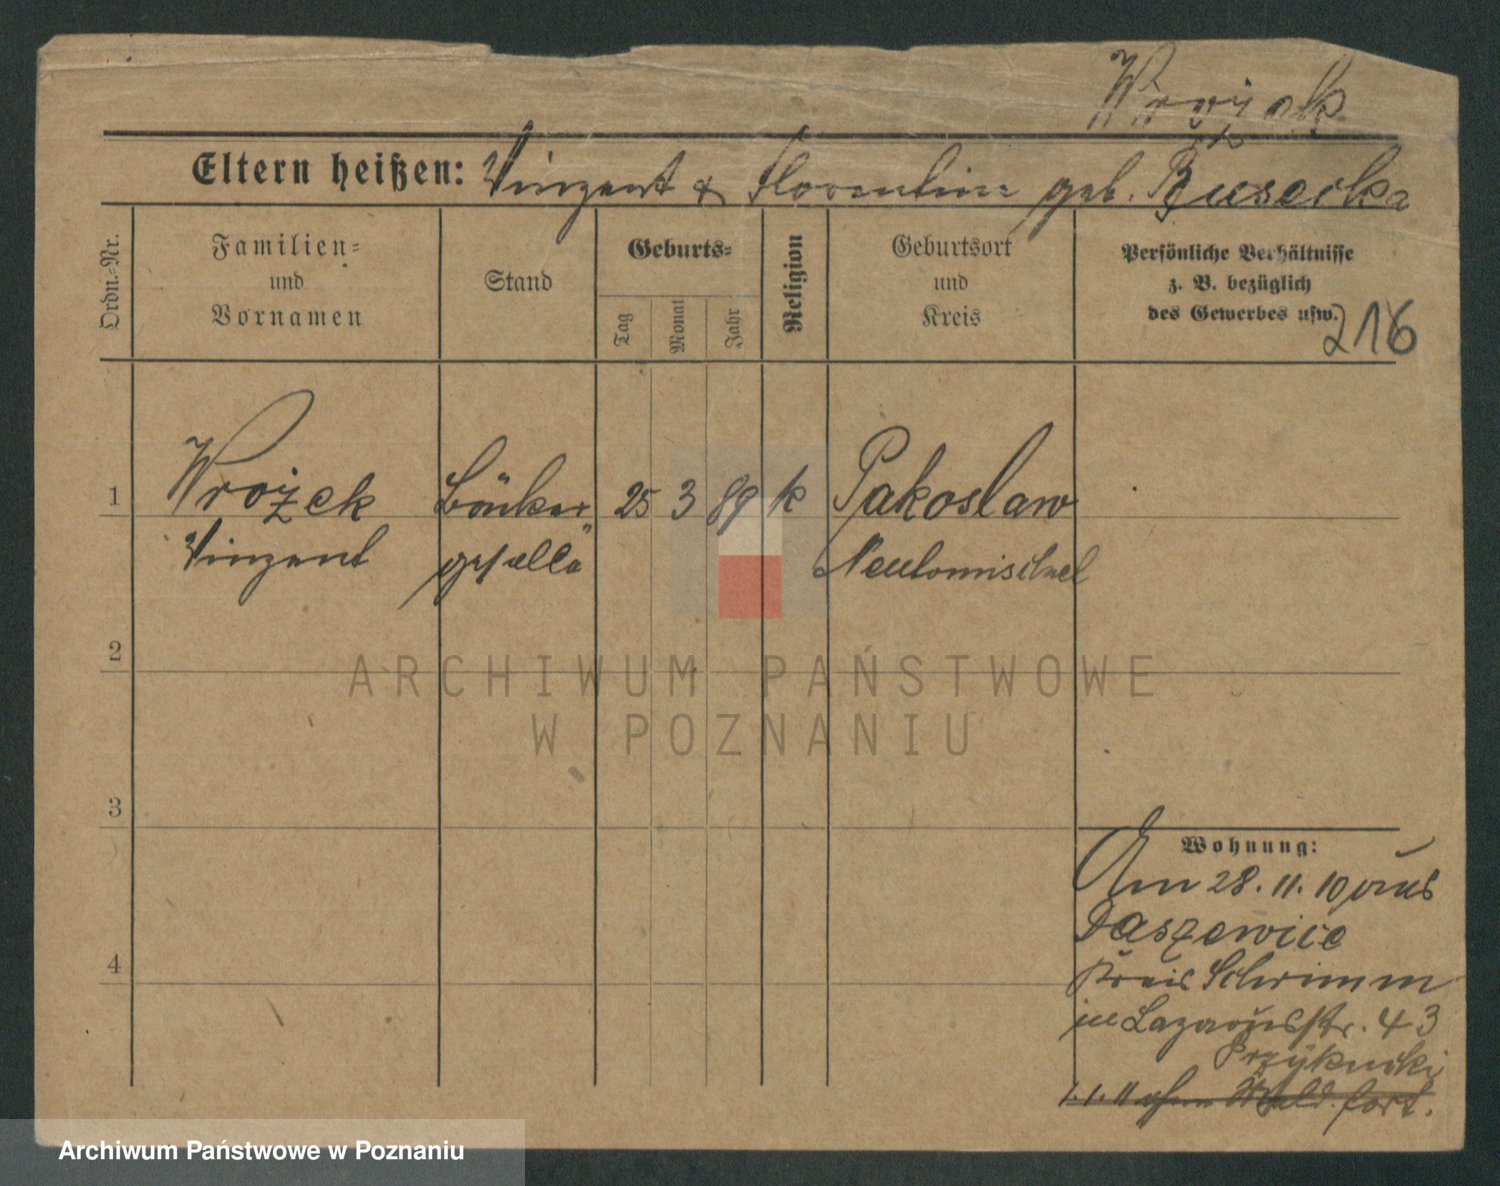 Wrożek
Eltern heißen: Vinzent & Florentine geb. Busecka
Ordn.=Nr.
Familien=
und
Vornamen
Stand
Geburts=
Tag
Monat
Jahr
Religion
Geburtsort
und
Kreis
Persönliche Verhältnisse
z. B. bezüglich
des Gewerbes usw.
216
1
Wrożek
Vinzent
geselle
25 3 89 k
Pakoslaw
Neutomischel
2
3
4
Wohnung:
Am 28. 11. 10 aus
Daszewice
Kreis Schrimm
in Lazarusstr. 43
1. 1. 11 ohne Meld. fort.
ARCHIWUM PAŃSTWOWE
W POZNANIU
Archiwum Państwowe w Poznaniu